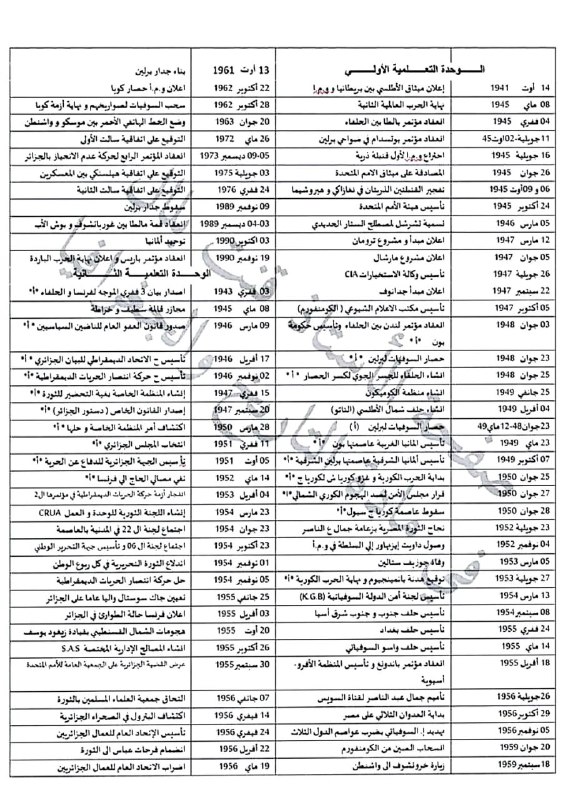 الـوحدة التعـلمية الأولـى
14 أوت 1941 إعلان ميثاق الأطلسي بين بريطانيا و و.م.أ
08 ماي 1945 نهاية الحرب العالمية الثانية
04 فيفري 1945 انعقاد مؤتمر يالطا بين الحلفاء
11جويلية-02اوت45 انعقاد مؤتمر بوتسدام في ضواحي برلين
16 جويلية 1945 اختراع و.م.أ لأول قنبلة ذرية
26 جوان 1945 المصادقة على ميثاق الامم المتحدة
06 و09أوت 1945 تفجير القنبلتين الذريتان في نغازاكي و هيروشيما
24 أكتوبر 1945 تأسيس هيئة الأمم المتحدة
05 مارس 1946 تسمية تشرشل لمصطلح الستار الحديدي
12 مارس 1947 اعلان مبدأ و مشروع ترومان
05 جوان 1947 اعلان مشروع مارشال
26 جويلية 1947 تأسيس وكالة الاستخبارات CIA
22 سبتمبر 1947 اعلان مبدأ جدانوف
05 أكتوبر 1947 تأسيس مكتب الاعلام الشيوعي ( الكومنفورم)
03 جوان 1948 انعقاد مؤتمر لندن بين الحلفاء وتأسيس حكومة بون *أ*
23 جوان 1948 حصار السوفيات لبرلين *أ*
25 جوان 1948 انشاء الحلفاء للجسر الجوي لكسر الحصار *أ*
25 جانفي 1949 انشاء منظمة الكوميكون
04 أفريل 1949 انشاء حلف شمال الأطلسي (الناتو)
23جوان48-12ماي49 حصار السوفيات لبرلين (أ)
23 ماي 1949 تأسيس ألمانيا الغربية عاصمتها بون *أ*
07 أكتوبر 1949 تأسيس ألمانيا الشرقية عاصمتها برلين الشرقية *أ*
25 جوان 1950 بداية الحرب الكورية و غزو كوريا ش لكوريا ج *أ*
27 جوان 1950 قرار مجلس الأمن لصد الهجوم الكوري الشمالي*أ*
28 جوان 1950 سقوط عاصمة كوريا ج سيول*أ*
23 جويلية 1952 نجاح الثورة المصرية بزعامة جمال ع الناصر
04 نوفمبر 1952 وصول دوايت إيزنهاور إلى السلطة في و.م.أ
05 مارس 1953 وفاة جوزيف ستالين
27 جويلية 1953 توقيع هدنة بانمينجوم و نهاية الحرب الكورية *أ*
13 مارس 1954 تأسيس لجنة أمن الدولة السوفياتية (K.G.B)
08 سبتمبر 1954 تأسيس حلف جنوب و جنوب شرق آسيا
24 فيفري 1955 تأسيس حلف بغداد
14 ماي 1955 تأسيس حلف وارسو السوفياتي
18 أفريل 1955 انعقاد مؤتمر باندونغ و تأسيس المنظمة الأفرو- أسيوية
26جويلية 1956 تأميم جمال عبد الناصر لقناة السويس
29 أكتوبر 1956 بداية العدوان الثلاثي على مصر
05 نوفمبر 1956 تهديد إ. السوفياتي بضرب عواصم الدول الثلاث
20 جوان 1959 انسحاب الصين من الكومنفورم
18 سبتمبر 1959 زيارة خروتشوف الى واشنطن
13 أوت 1961 بناء جدار برلين
22 أكتوبر 1962 اعلان و.م.أ حصار كوبا
28 أكتوبر 1962 سحب السوفيات لصواريخهم و نهاية أزمة كوبا
20 جوان 1963 وضع الخط الهاتفي الأحمر بين موسكو و واشنطن
26 ماي 1972 التوقيع على اتفاقية سالت الأولى
05-09 ديسمبر 1973 انعقاد المؤتمر الرابع لحركة عدم الانحياز بالجزائر
03 جويلية 1975 التوقيع على اتفاقية هيلسنكي بين المعسكرين
24 فيفري 1976 التوقيع على اتفاقية سالت الثانية
09 نوفمبر 1989 سقوط جدار برلين
03-04 ديسمبر 1989 انعقاد قمة مالطا بين غورباتشوف و بوش الأب
03 أكتوبر 1990 توحيد ألمانيا
19 نوفمبر 1990 انعقاد مؤتمر باريس و اعلان نهاية الحرب الباردة
الوحدة التعلمية الثـانية
03 فيفري 1943 اصدار بيان 3 فيفري الموجه لفرنسا و الحلفاء *أ*
08 ماي 1945 مجازر قالمة سطيف و خراطة
09 مارس 1946 صدور قانون العفو العام للناضين السياسيين *أ*
17 أفريل 1946 تأسيس ح الاتحاد الديمقراطي للبيان الجزائري *أ*
02 نوفمبر 1946 تأسيس ح حركة انتصار الحريات الديمقراطية *أ*
15 فيفري 1947 إنشاء المنظمة الخاصة بغية التحضير للثورة *أ*
20 سبتمبر 1947 إصدار القانون الخاص (دستور الجزائر) *أ*
28 مارس 1950 اكتشاف أمر المنظمة الخاصة و حلها *أ*
11 فيفري 1951 انتخاب المجلس الجزائري *أ*
05 أوت 1951 تأسيس الجبهة الجزائرية للدفاع عن الحرية *أ*
14 ماي 1952 نفي مصالي الحاج الى فرنسا *أ*
04 أفريل 1953 انفجار أزمة حركة انتصار الحريات الديمقراطية في مؤتمرها ال2
23 مارس 1954 إنشاء اللجنة الثورية للوحدة و العمل CRUA
23 جوان 1954 اجتماع لجنة ال 22 في المدنية بالعاصمة
23 أكتوبر 1954 اجتماع لجنة ال 06 و تأسيس جبهة التحرير الوطني
01 نوفمبر 1954 اندلاع الثورة التحريرية في كل ربوع الوطن
05 نوفمبر 1954 حل حركة انتصار الحريات الديمقراطية
25 جانفي 1955 تعيين جاك سوستال واليا عاما على الجزائر
03 أفريل 1955 اعلان فرنسا حالة الطوارئ في الجزائر
20 أوت 1955 هجومات الشمال القسنطيني بقيادة زيغود يوسف
26 أكتوبر 1955 انشاء المصالح الإدارية المختصة S.A.S
30 سبتمبر1955 عرض القضية الجزائرية على الجمعية العامة للأمم المتحدة
07 جانفي 1956 التحاق جمعية العلماء المسلمين بالثورة
14 فيفري 1956 اكتشاف البترول في الصحراء الجزائرية
24 فيفري 1956 تأسيس الإتحاد العام للعمال الجزائريين
22 أفريل 1956 انضمام فرحات عباس الى الثورة
19 ماي 1956 اضراب الاتحاد العام للعمال الجزائريين